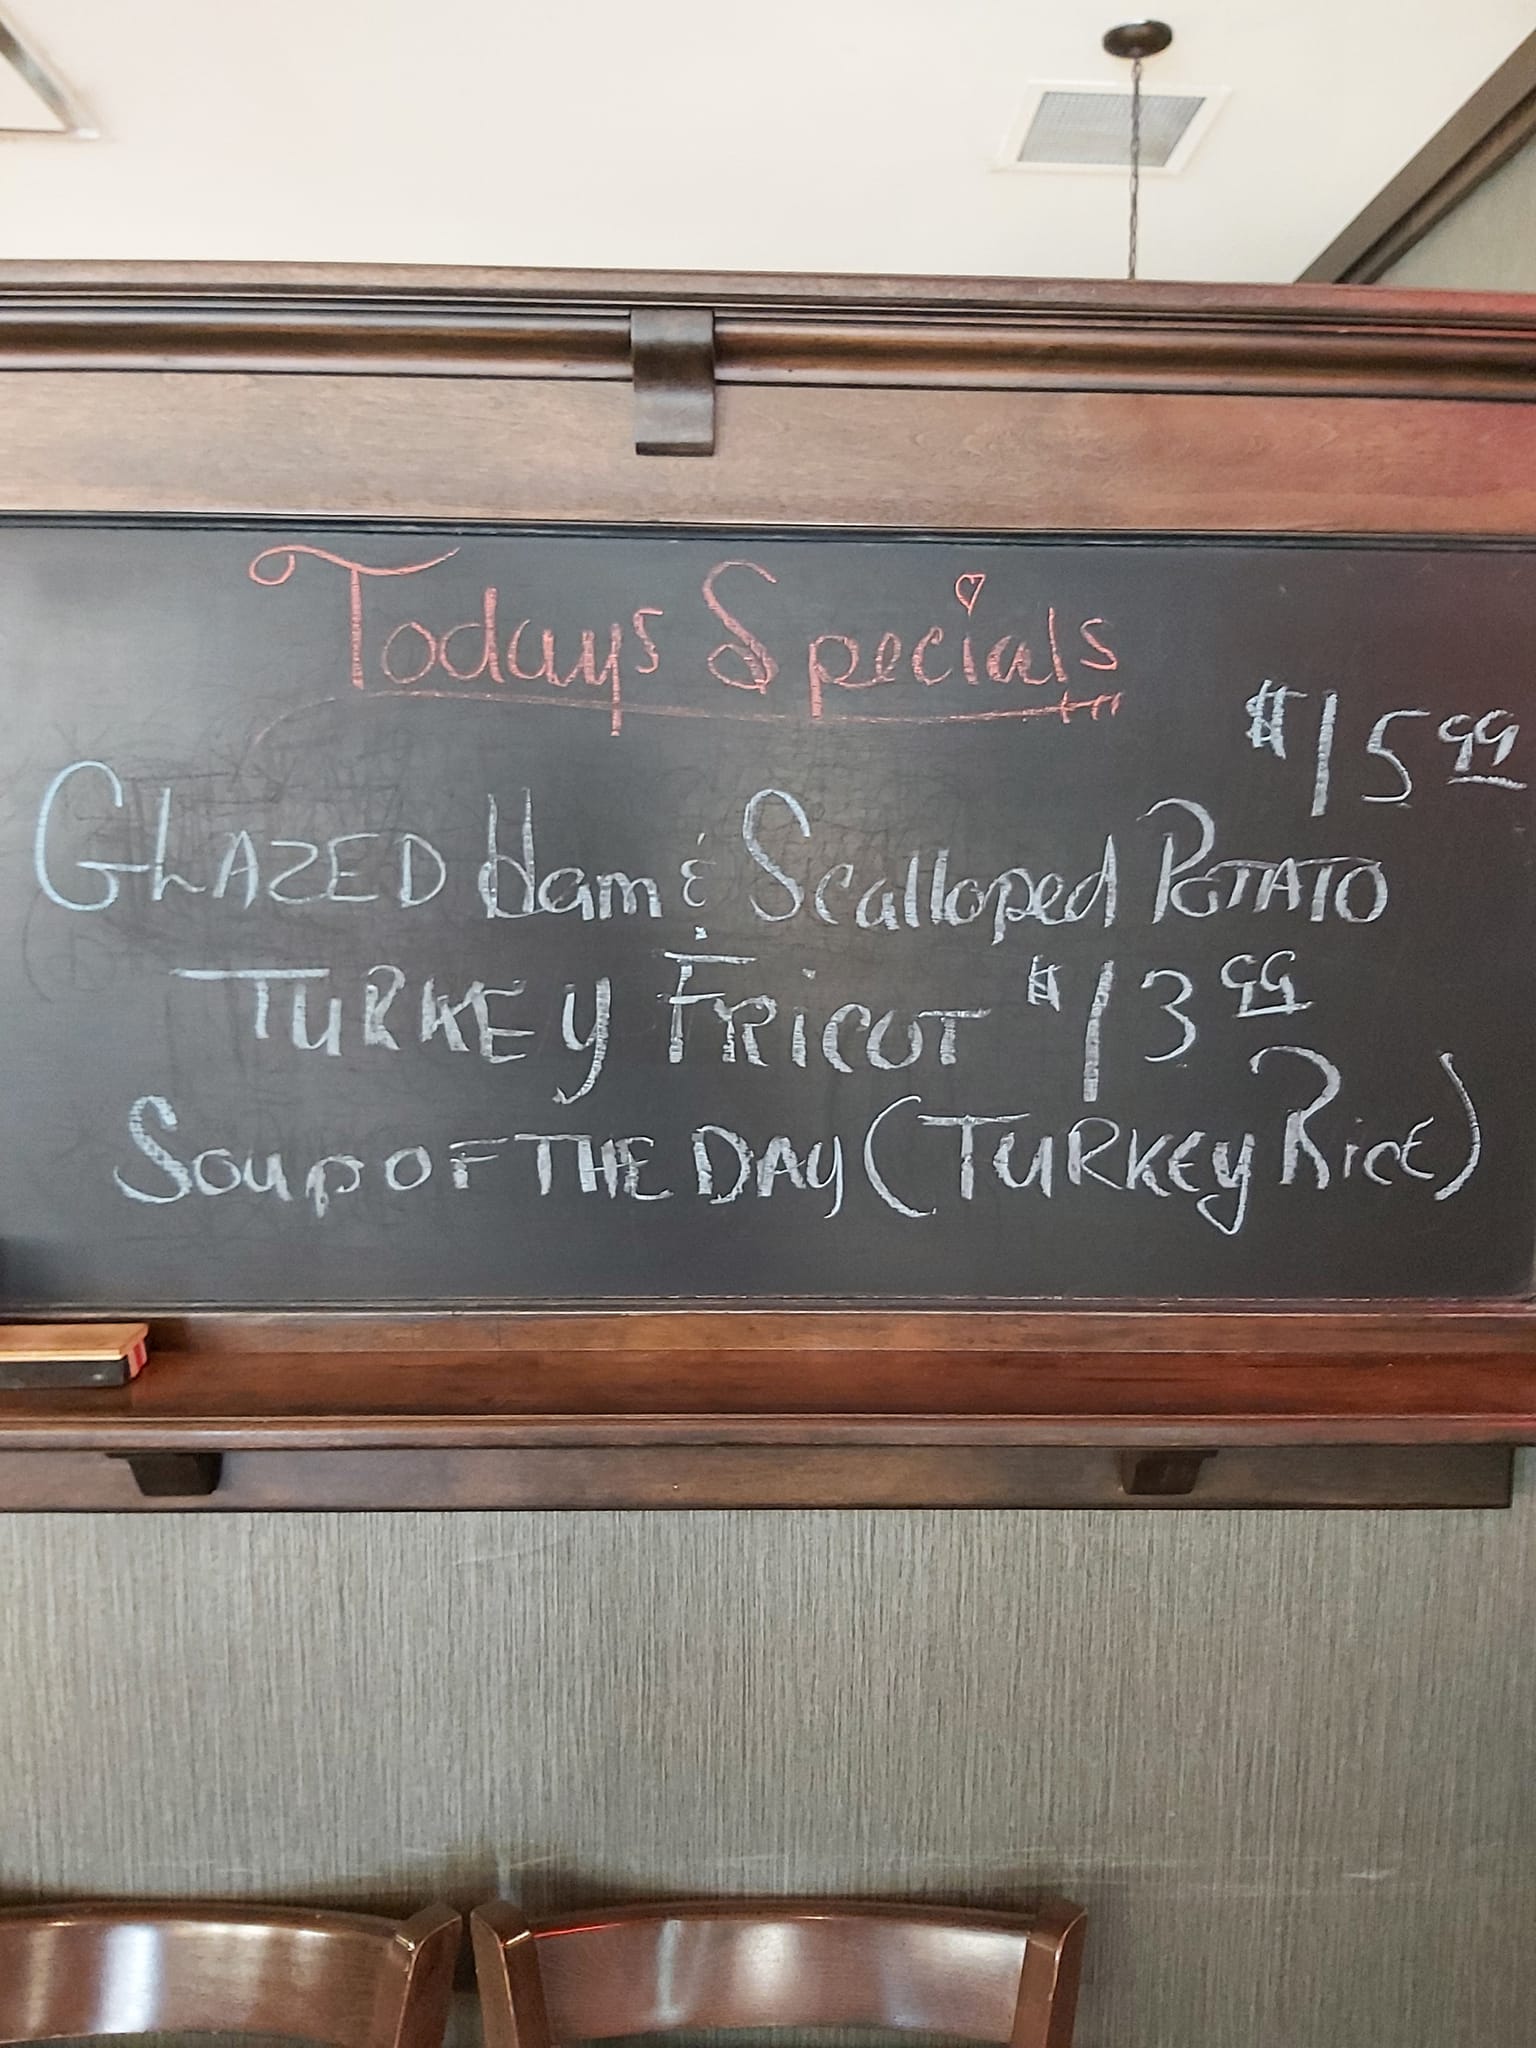 Todays Specials
$15 99
GLAZED Ham & Scalloped POTATO
TURKEY FRICOT $13 99
Soup OF THE DAY (TURKEY Rice)